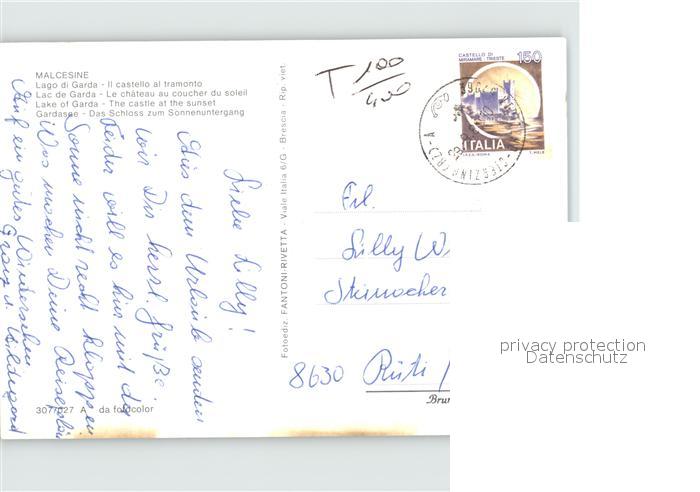 MALCESINE
Lago di Garda - Il castello al tramonto
Lac de Garda - Le château au coucher du soleil
Lake of Garda - The castle at the sunset
Gardasee - Das Schloss zum Sonnenuntergang
Liebe Lilly!
Aus dem Urlaub senden
wir Dir herzl. Grüße.
Leider will es hier mit der
Sonne nicht recht klappen
Was machen Deine Reisepläne
Auf ein gutes Wiedersehen
Franz u. Hildegard
307/027 A da fotcolor
Fotoediz. FANTONI-RIVETTA - Viale Italia 6/G - Brescia - Rip. viet.
T 100
400
CASTELLO DI
MIRAMARE - TRIESTE
150
ITALIA
Frl.
Lilly W
8630 Rüti
Brun
privacy protection
Datenschutz